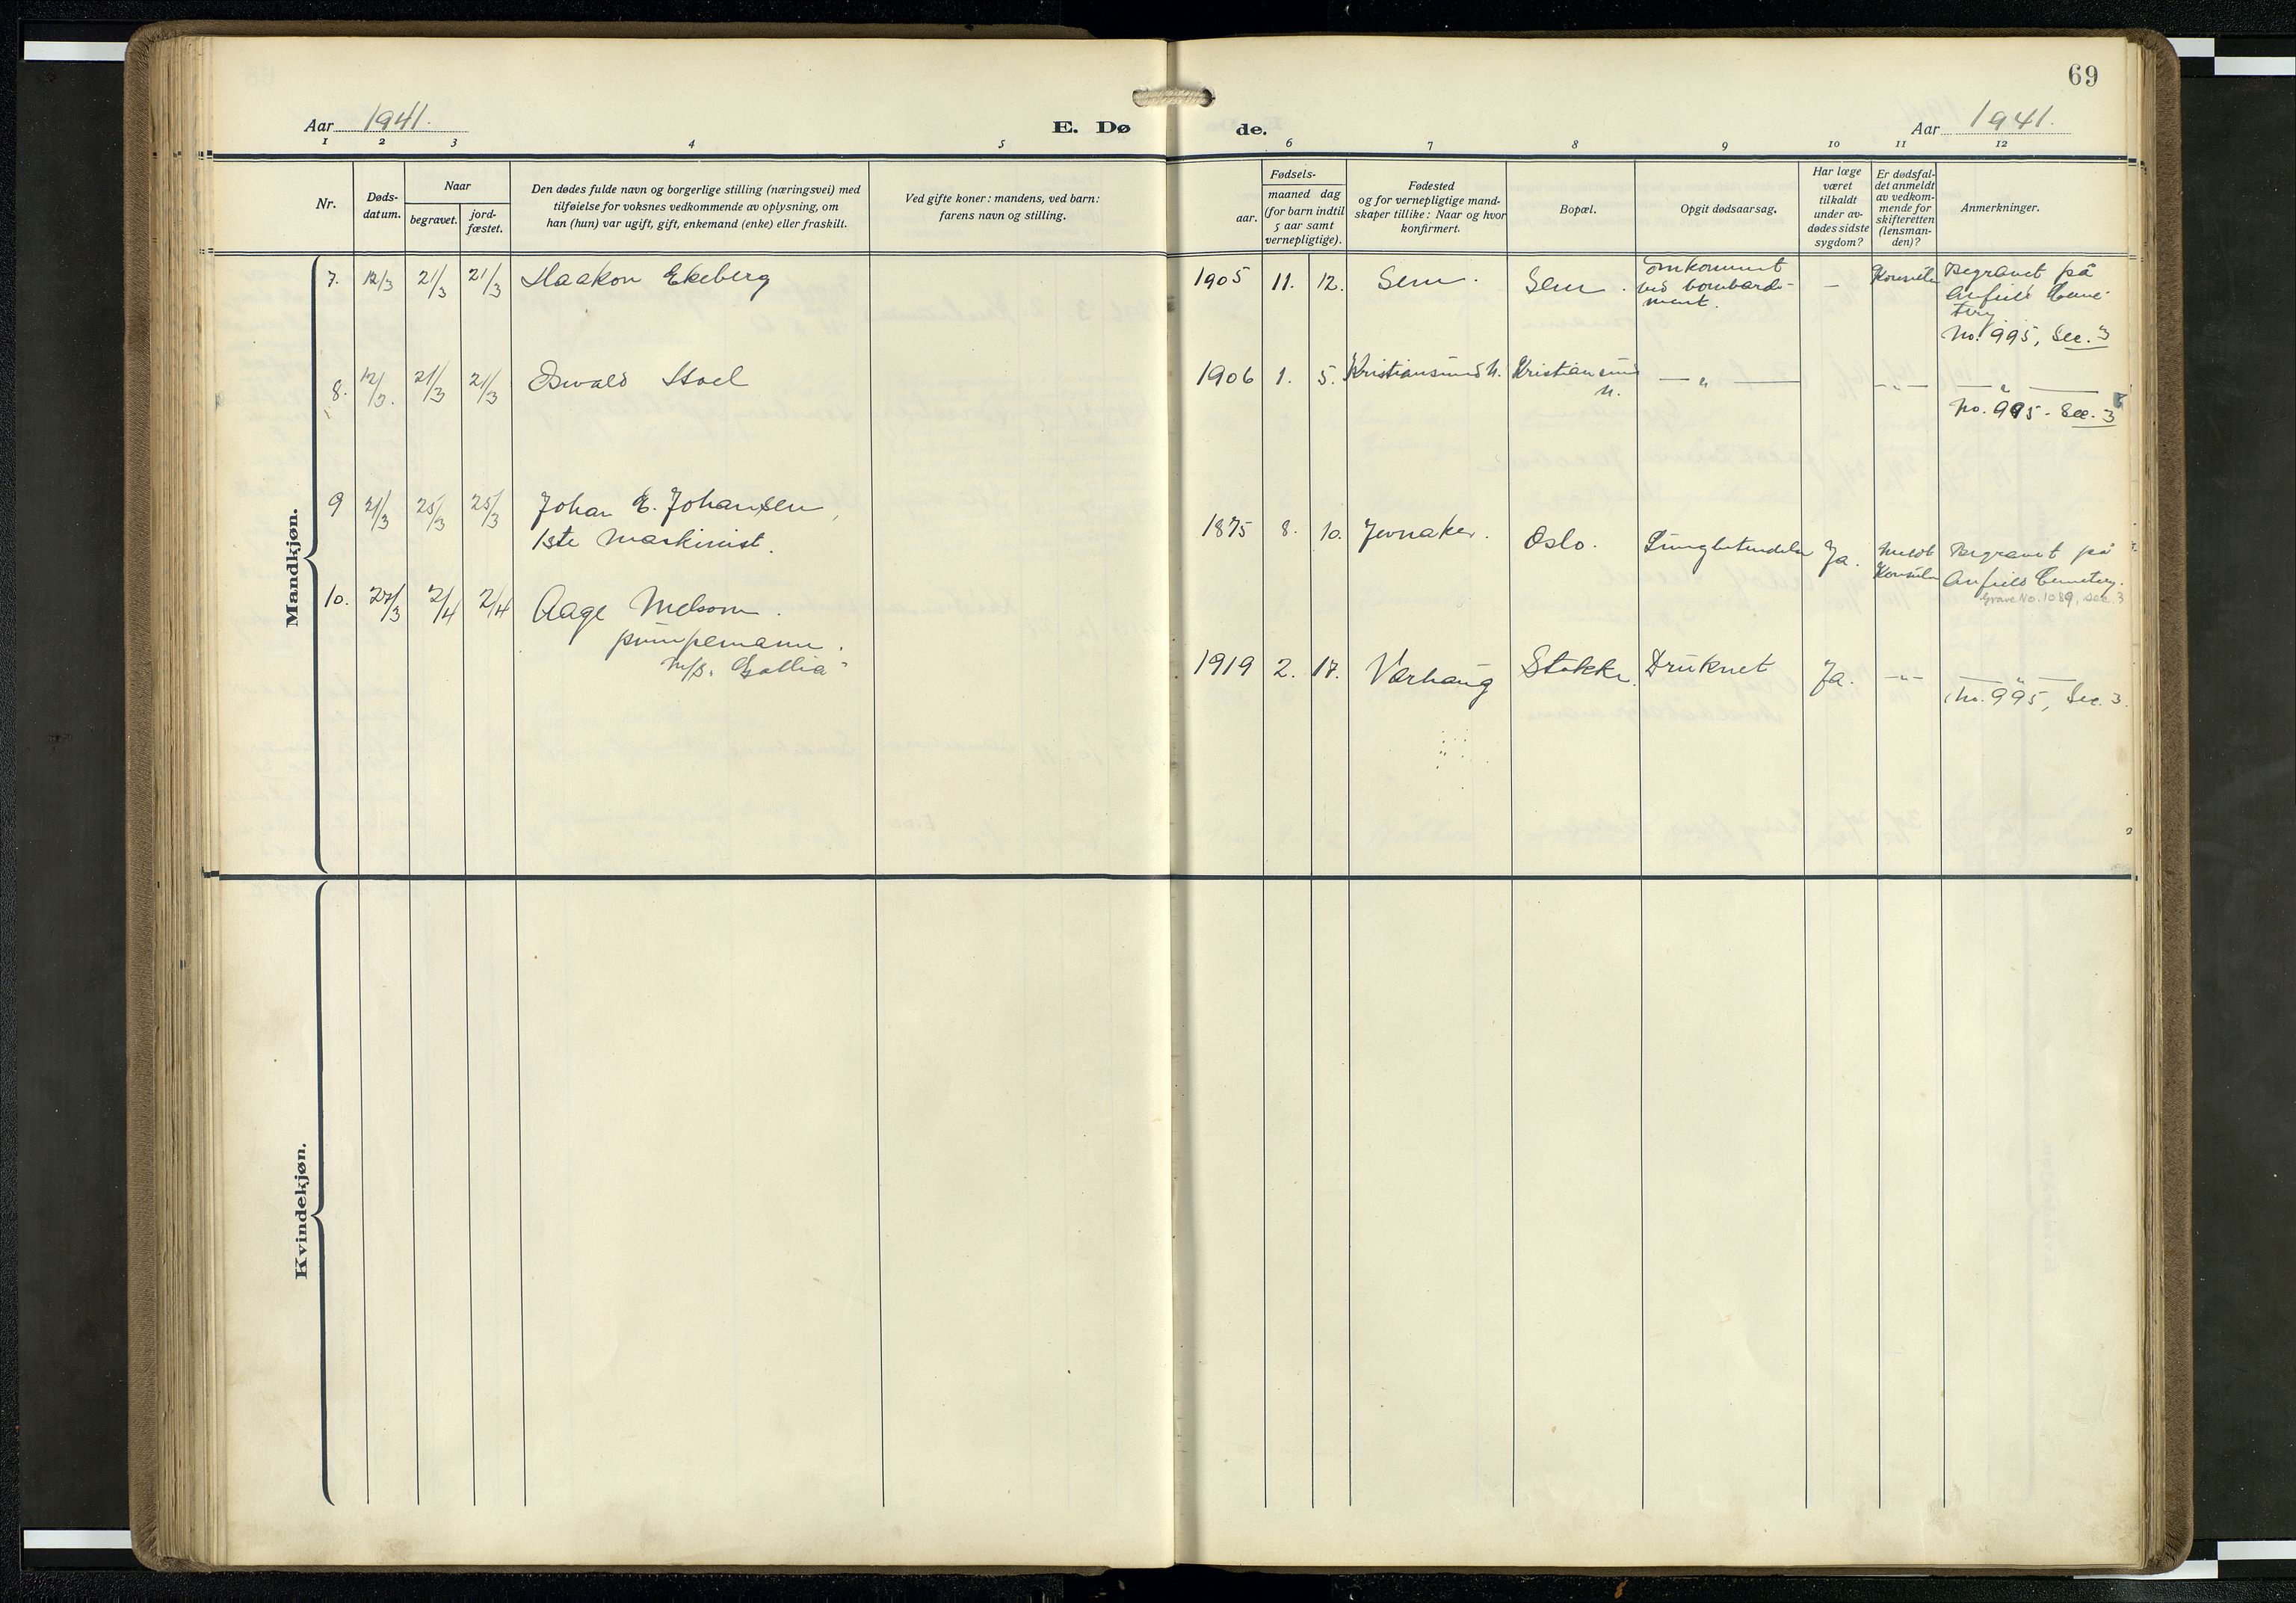 69
Aar 1941.
E. Dø de.
Aar 1941.
1 2 3 4 5 6 7 8 9 10 11 12
Nr.
Døds-
datum.
Naar
begravet.
jord-
fæstet.
Den dødes fulde navn og borgerlige stilling (næringsvei) med
tilføielse for voksnes vedkommende av oplysning, om
han (hun) var ugift, gift, enkemand (enke) eller fraskilt.
Ved gifte koner: mandens, ved barn:
farens navn og stilling.
Fødsels-
aar.
maaned dag
(for barn indtil
5 aar samt
vernepligtige).
Fødested
og for vernepligtige mand-
skaper tillike: Naar og hvor
konfirmert.
Bopæl.
Opgit dødsaarsag.
Har læge
været
tilkaldt
under av-
dødes sidste
sygdom?
Er dødsfal-
det anmeldt
av vedkom-
mende for
skifteretten
(lensman-
den)?
Anmerkninger.
Mandkjøn.
7. 12/3 21/3 21/3 Haakon Ekeberg
1905 11. 12. Sem. Sem.
omkommet
ved bombarde-
ment.
—
Begravet på
Anfield Ceme-
tery
No. 995, Sec. 3
8. 12/3. 21/3 21/3 Oswald Stoel
1906 1. 5. Kristiansund N. Kristiansund
N.
— „ —
— „ —
— „ —
No. 995 - Sec. 3
9 21/3 25/3 25/3 Johan E. Johansen,
1ste maskinist.
1875 8. 10. Jevnaker. Oslo. Lungbetendelse Ja.
Meldt
Konsulen
Begravet på
Anfield Cemetery.
Grave No. 1089, sec. 3
10. 27/3 2/4 2/4 Aage Melsom.
pumpemann.
M/S. Gallia"
1919 2. 17. Varhaug Stokke. Druknet Ja. — „ —
— „ —
No. 995, Sec. 3.
Kvindekjøn.